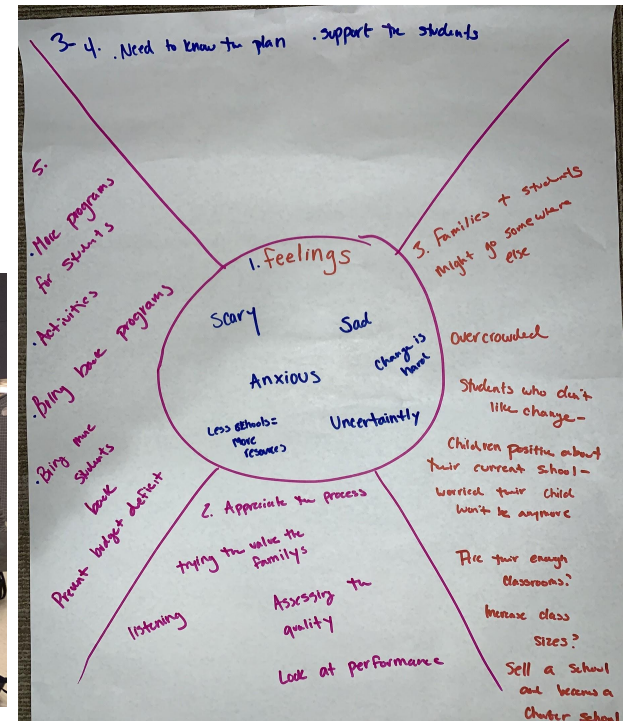 3-4. . Need to know the plan . support the students
5.
. More programs
for students
. Activities
. Bring back programs
. Bring more
students
back
Prevent budget deficit
1. feelings
Scary
Sad
Change is
hard
Anxious
Less schools =
more
resources
Uncertaintly
3. Families + students
might go somewhere
else
Overcrowded
Students who don't
like change -
Children positive about
their current school -
worried their child
won't be anymore
Are their enough
classrooms?
Increase class
sizes?
Sell a school
and becomes a
Charter school
2. Appreciate the process
trying the value the
familys
listening
Assessing the
quality
Look at performance